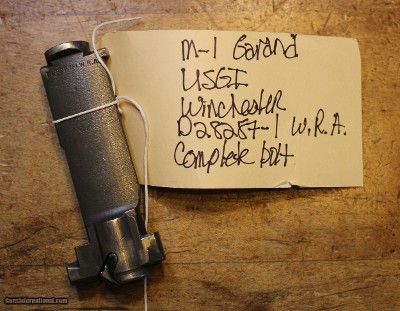 M-1 Garand
USGI
Winchester
D28287-1 W.R.A.
Complete bolt
GunsInternational.com